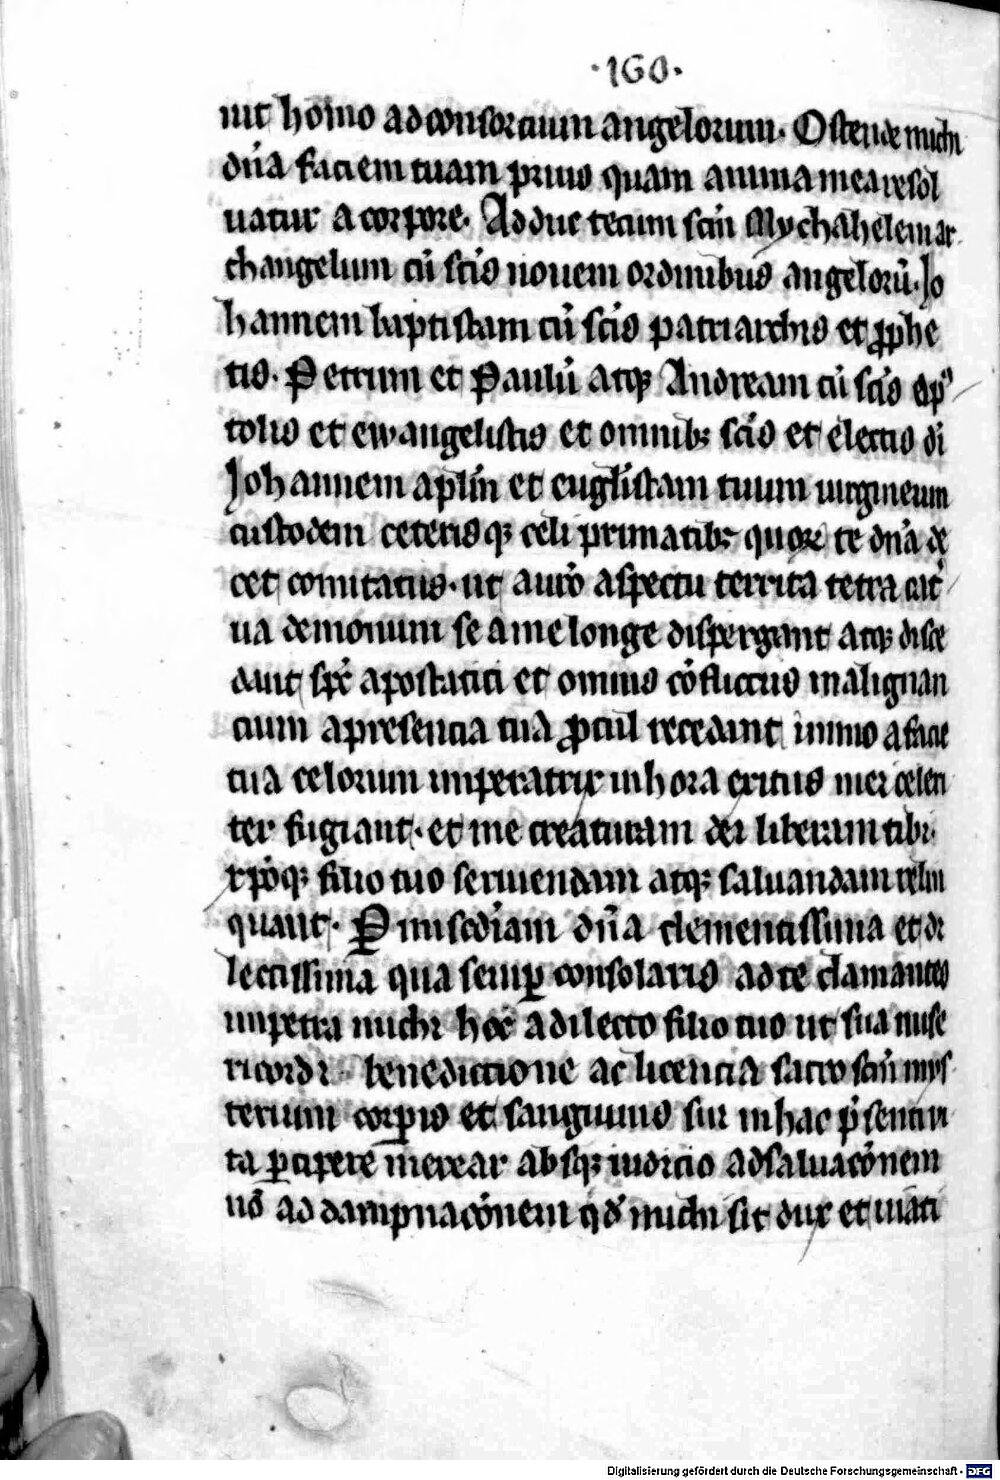 ·160·
nit homo ad consorcium angelorum. Ostende michi
dn̄a faciem tuam prius quam anima mea resol
uatur a corpore. Adduc tecum scm̄ Mychahelem ar
changelum cū scīs nouem ordinibus angelorū. Jo
hannem baptistam cū scīs patriarchis et ꝓphe
tis. Petrum et Paulū atqꝫ Andream cū scīs ap̄
tolis et ewangelistis et omnibꝫ scīs et electis di
Johannem aplm̄ et euglīstam tuum uirgineum
custodem ceterisqꝫ celi primatibꝫ quoꝝ te dn̄a de
cet comitatus. ut auro aspectu territa tetra cat̄
ua demonum se a me longe dispergant atqꝫ disce
dant spc̄ apostatici et omnis cōflictus malignan
cium a presencia tua ꝓcul recedant immo a facie
tua celorum imperatrix in hora exitus mei celeri
ter fugiant. et me creaturam dei liberam tibi.
xpōqꝫ filio tuo seruiendam atqꝫ saluandam relin
quant. P miscd̄iam dn̄a clementissima et di
lectissima qua semꝑ consolaris ad te clamantes
impetra michi hoc a dilecto filio tuo ut sua mise
ricordi benedictione ac licencia sacro scm̄ mys
terium corꝑis et sanguinis sui in hac p̄senti ui
ta ꝑcipere merear absqꝫ iudicio ad saluacōnem
nō ad dampnacōnem qd̄ michi sit dux et uiati
Digitalisierung gefördert durch die Deutsche Forschungsgemeinschaft - DFG